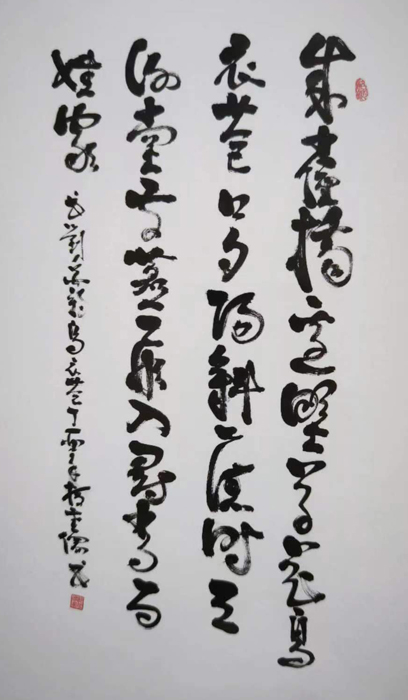 朱雀橋邊野草花烏
衣巷口夕陽斜舊時王
謝堂前燕飛入尋常百
姓家 劉禹錫烏衣巷